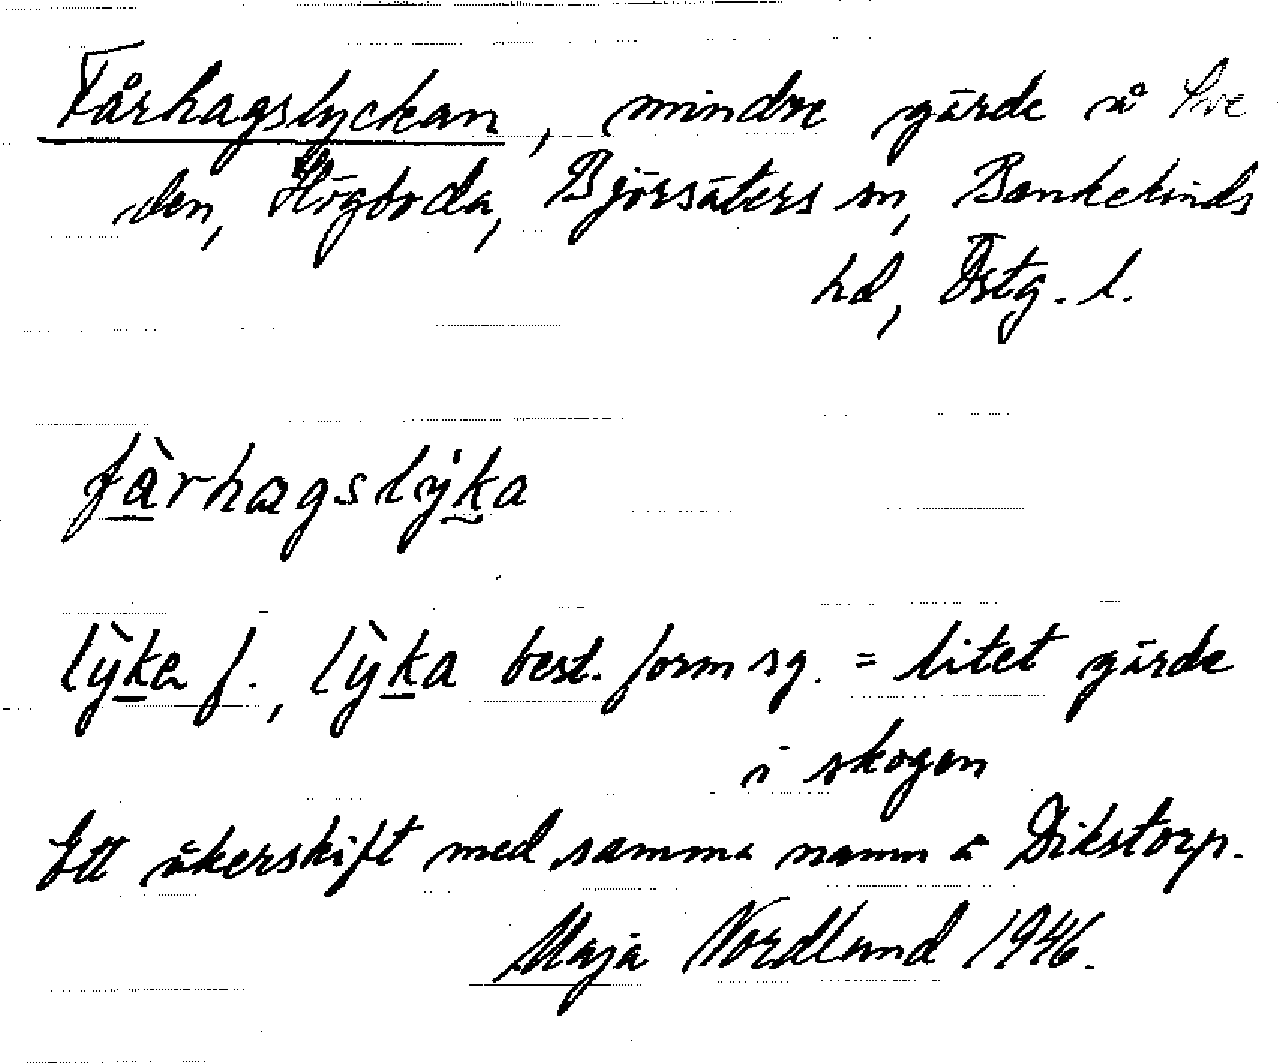 Fårhagslyckan, mindre gärde å Sve
den, Högboda, Björsäters sn, Bankekinds
hd, Östg. l.
fàrhagslýka
lỳka f., lỳka best. form sg. = litet gärde
i skogen
Ett åkerskift med samma namn å Dikstorp.
Maja Nordlund 1946.